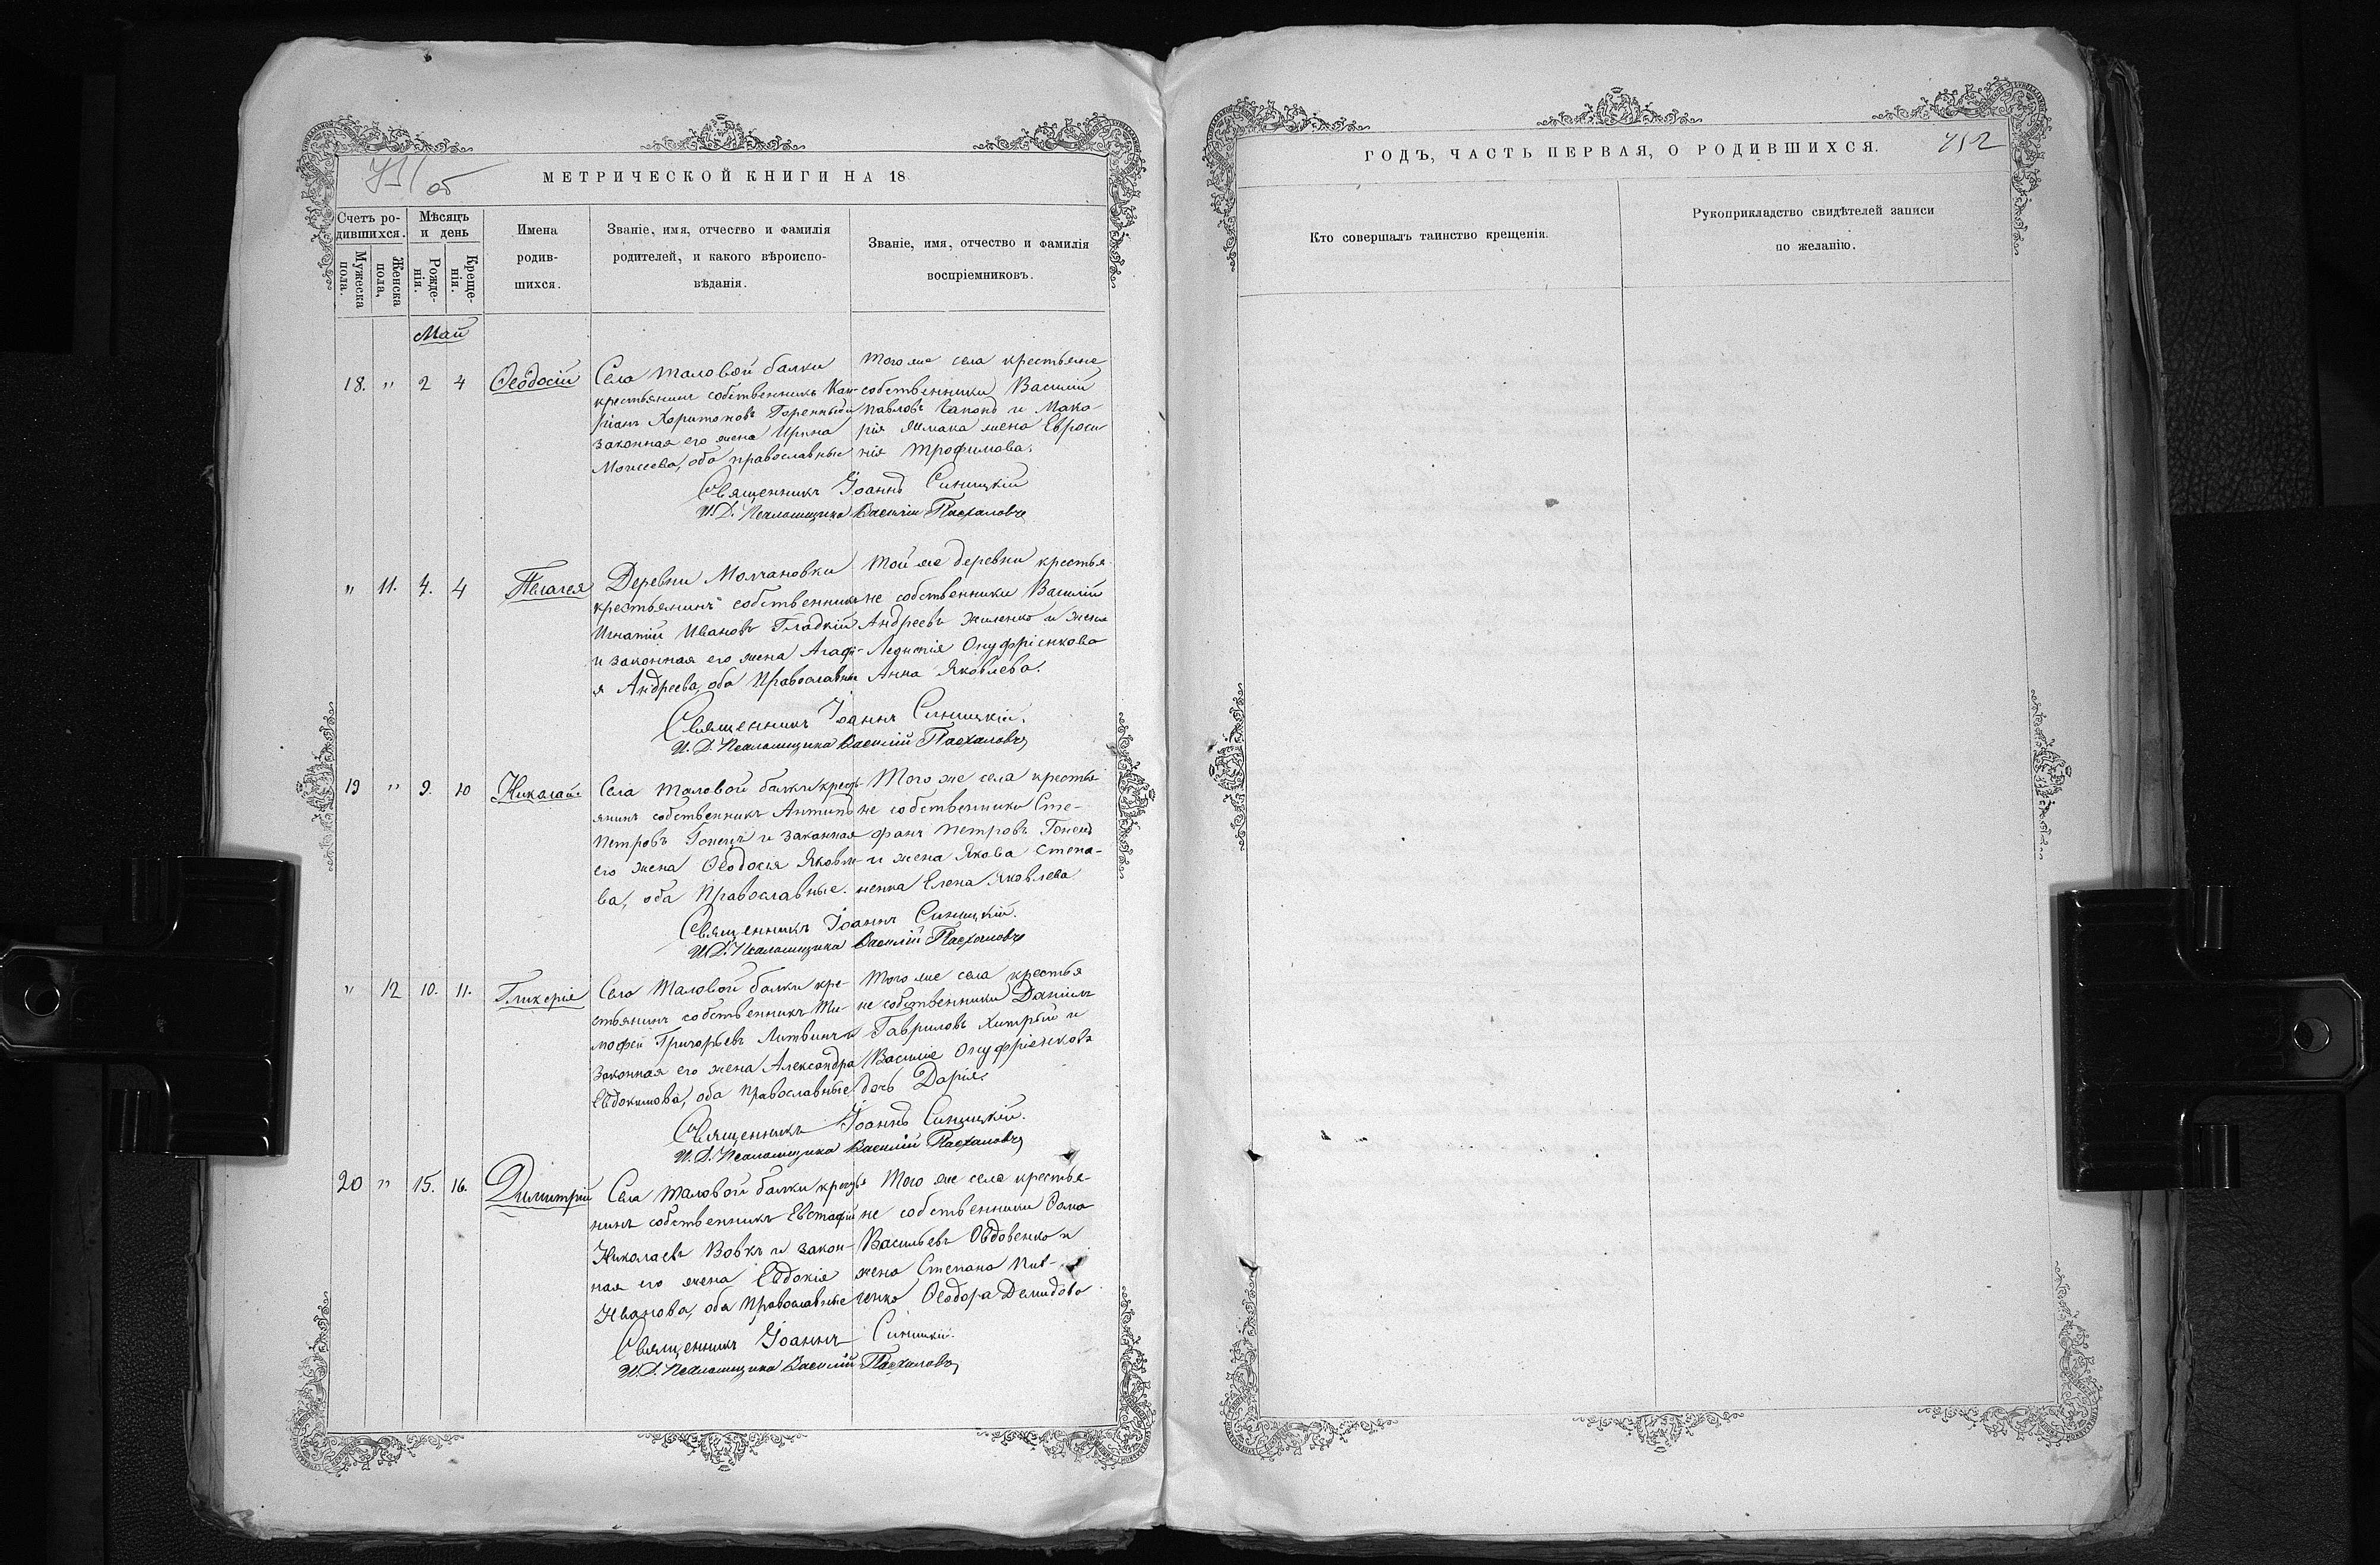 751 об
МЕТРИЧЕСКОЙ КНИГИ НА 18
Счетъ ро-
дившихся.
Мужеска
пола.
Женска
пола,
Мѣсяцъ
и день
Рожде-
нія.
Креще-
нія.
Имена
родив-
шихся.
Званіе, имя, отчество и фамилія
родителей, и какого вѣроиспо-
вѣданія.
Званіе, имя, отчество и фамилія
воспріемниковъ.
Май
18. " 2 4 Ѳеодосій
Села Таловой балки
крестьянинъ собственникъ
Харитоновъ
законная его жена Ирина
Моисеева, оба православные
Того же села крестьяне
собственники Василій
Павловъ Гапонъ и Мака-
рія жена Евроси-
нія Трофимова.
Священникъ Іоаннъ Синицкій
И.Д. Псаломщика Василій Пасхаловъ
" 11. 4. 4 Пелагея
Деревни Молчановки
крестьянинъ собственникъ
Игнатій Ивановъ Гладкій
и законная его жена Агафі-
я Андреева, оба Православные
Той же деревни крестья
не собственники Василій
Андреевъ Жиленко и жена
Онуфріенкова
Анна Яковлева.
Священникъ Іоаннъ Синицкій.
И.Д. Псаломщика Василій Пасхаловъ
19 " 9. 10 Николай.
Села Таловой балки крест-
янинъ собственникъ Антипъ
Петровъ Гонецъ и законная
его жена Ѳеодосія Яковле-
ва, оба Православные.
Того же села крестья
не собственники Сте-
фанъ Петровъ Гонецъ
и жена Якова Степа-
ненка Елена Яковлева
Священникъ Іоаннъ Синицкій.
И.Д. Псаломщика Василій Пасхаловъ
" 12 10. 11. Гликерія
Села Таловой балки кре-
стьянинъ собственникъ Ти-
мофей Григорьевъ Литвинъ и
законная его жена Александра
Евдокимова, оба православные
Того же села крестья
не собственники Даніилъ
Гавриловъ Хитрый и
Василія Онуфріенкова
дочь Дарія.
Священникъ Іоаннъ Синицкій.
И.Д. Псаломщика Василій Пасхаловъ
20 " 15. 16. Димитрій
Села Таловой балки крестья
нинъ собственникъ Евстафій
Николаевъ Вовкъ и закон-
ная его жена Евдокія
Иванова, оба православные
Того же села крестья-
не собственники Ѳома
Васильевъ Овдовенко и
жена Степана Пив-
ченко Ѳеодора Демидова
Священникъ Іоаннъ Синицкій.
И.Д. Псаломщика Василій Пасхаловъ
ГОДЪ, ЧАСТЬ ПЕРВАЯ, О РОДИВШИХСЯ.
752
Кто совершалъ таинство крещенія.
Рукоприкладство свидѣтелей записи
по желанію.